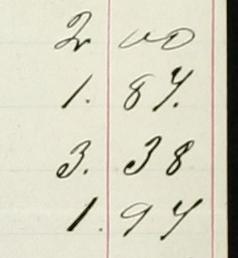 2 00
1. 87.
3. 38
1. 97